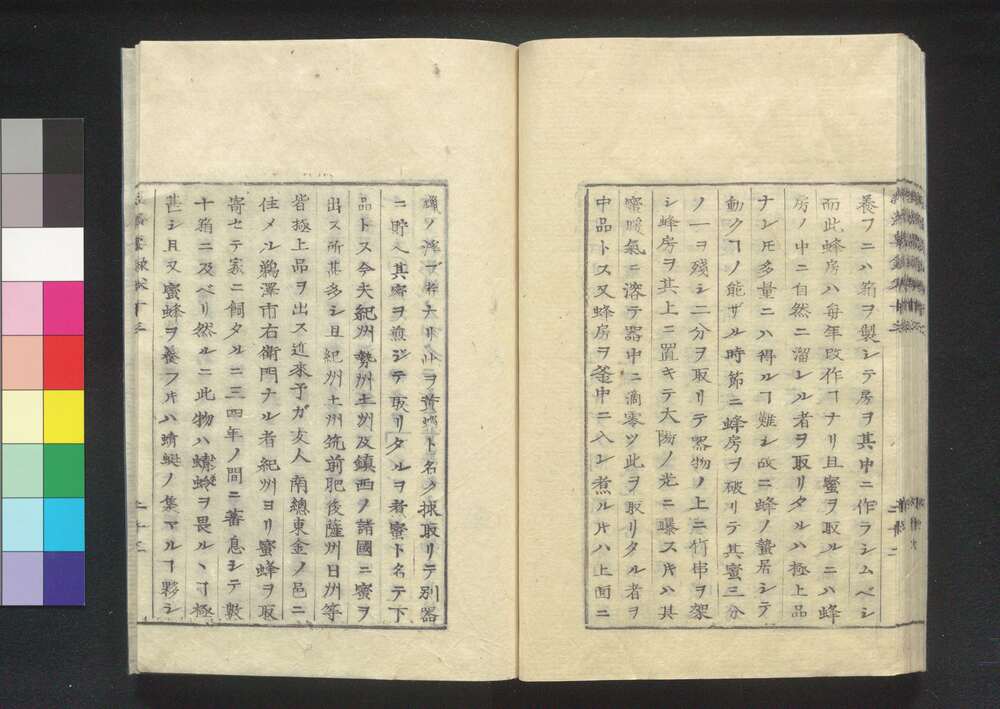 養フニハ箱ヲ製シテ房ヲ其中ニ作ラシムベシ
而此蜂房ハ毎年改作ヿナリ且蜜ヲ取ルニハ蜂
房ノ中ニ自然ニ溜レル者ヲ取リタルハ極上品
ナレ𪜈多量ニハ得ルヿ難シ故ニ蜂ノ蟄居シテ
動クヿノ能ザル時節ニ蜂房ヲ破リテ其蜜三分
ノ一ヲ殘シ二分ヲ取リテ器物ノ上ニ竹串ヲ架
シ蜂房ヲ其上ニ置キテ大陽ノ光ニ曝ス片ハ其
蜜暖氣ニ溶テ器中ニ滴零ツ此ヲ取リタル者ヲ
中品トス又蜂房ヲ釜中ニ入レ煮ル片ハ上面ニ
蠟ノ浮ブ者ナリ此ヲ黄蠟ト名ク採取リテ別器
ニ貯へ其密ヲ煎ジテ取リタルヲ者蜜ト名テ下
品トス今夫紀州勢州土州及鎮西ノ諸國ニ蜜ヲ
出ス所甚多シ且紀州土州筑前肥後薩州日州等
皆極上品ヲ出ス近來予ガ友人南總東金ノ邑ニ
住メル鵜澤市右衛門ナル者紀州ヨリ蜜蜂ヲ取
寄セテ家ニ飼タルニ三四年ノ間ニ蕃息シテ數
十箱ニ及ベリ然ルニ此物ハ螻蛉ヲ畏ルヽヿ極
甚シ且又蜜蜂ヲ養フ片ハ蜻蜓ノ集マルヿ夥シ